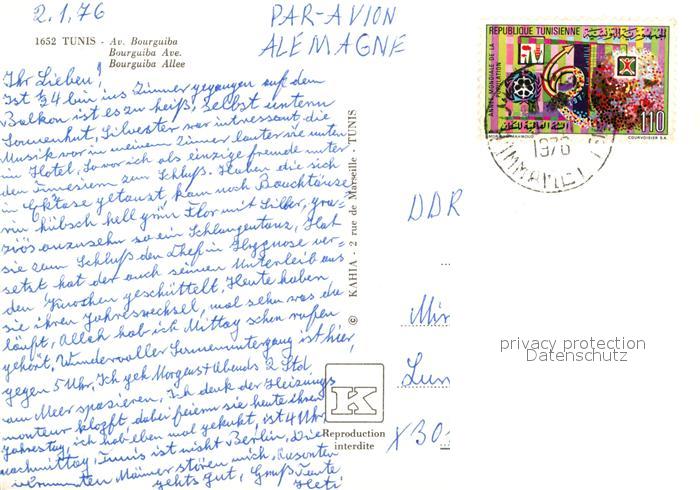 2.1.76
PAR-AVION
ALEMAGNE
1652 TUNIS - Av. Bourguiba
Bourguiba Ave.
Bourguiba Allee
Ihr Lieben!
Ist ¾4 bin ins Zimmer gegangen auf dem
Balkon ist es zu heiß, selbst unterm
Sonnenhut, Silvester war intressant die
Musik vor in meinem Zimmer lauter wie unten
im Hotel, So war ich als einzige fremde unter
den Tunesiern zum Schluß. Haben die sich
in Ektase getanzt, kam noch Bauchtänze=
rin hübsch hell grün Flor mit Silber, gra=
ziös anzusehn so ein Schlangentanz, Hat
sie zum Schluß den Chef in Hypgnose ver=
setzt hat der auch seinen Unterleib aus
den Knochen geschüttelt. Heute haben
sie ihren Jahreswechsel, mal sehn was da
läuft, Allah hab ich Mittag schon rufen
gehört, Wundervoller Sonnenuntergang ist hier,
gegen 5 Uhr, Ich geh Morgens + Abends 2 Std.
am Meer spazieren, Ich denk der Heizungs
monteur klopft, dabei feiern sie heute ihren
Jahrestag, ich hab eben mal gekukt, ist 4 Uhr
nachmittag, Tunis ist nicht Berlin, Die
vermummten Männer stören mich, Ansonsten
gehts gut, Gruß Tante
Heti
© KAHIA - 2 rue de Marseille - TUNIS
K
Reproduction
interdite
REPUBLIQUE TUNISIENNE
الجمهورية التونسية
ANNÉE MONDIALE DE LA POPULATION
110
COURVOISIER S.A.
1976
DDR
Mir
Lun
X 30
privacy protection
Datenschutz